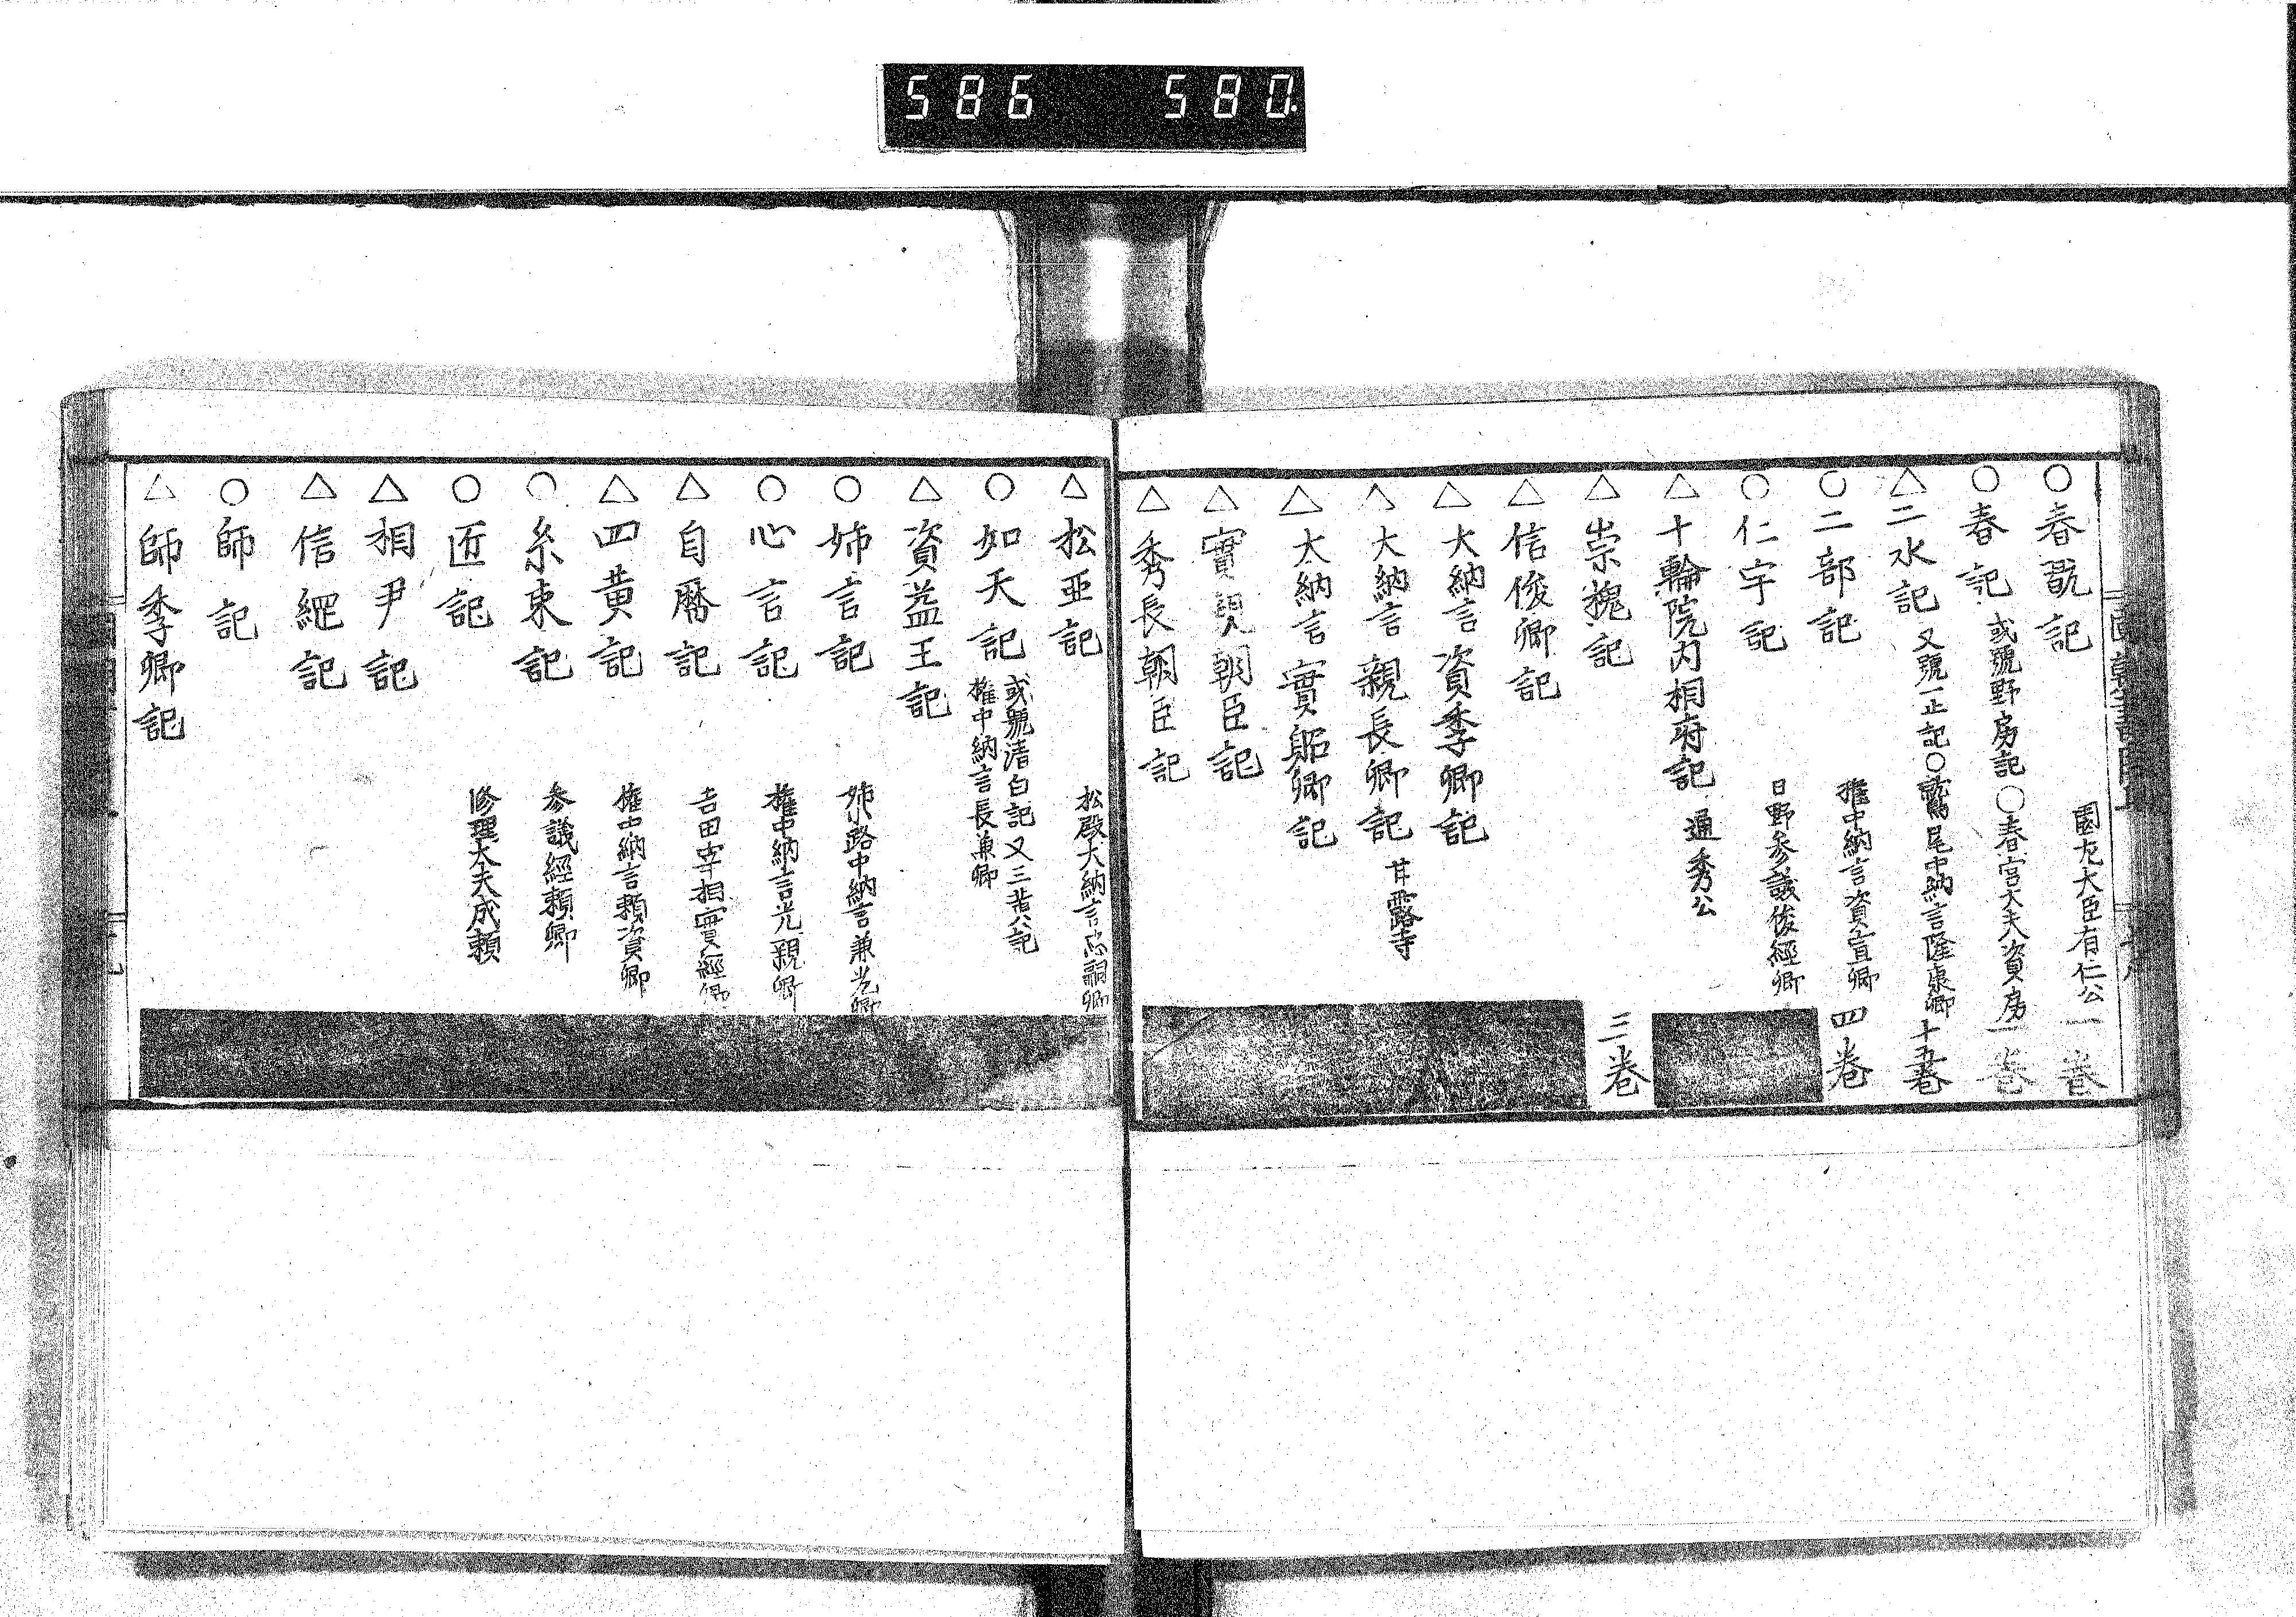 586 580.
○春翫記 園左大臣有仁公 一巻
○春記 或號野房記○春宮大夫資房 一巻
△二水記 又號一正記○鷲尾中納言隆康卿 十五巻
○二部記 權中納言資宣卿 四巻
○仁宇記 日野参議俊經卿
△十輪院内相府記 通秀公
△崇槐記 三巻
△信俊卿記
△大納言資季卿記
△大納言親長卿記 甘露寺
△大納言實躬卿記
△實親朝臣記
△秀長朝臣記
△松亜記 松殿大納言忠嗣卿
○如天記 或號清白記又三昔八記
權中納言長兼卿
△資益王記
○姉言記 姉小路中納言兼光卿
○心言記 權中納言光親卿
△自暦記 吉田宰相實經卿
△四黄記 權中納言頼資卿
○糸束記 参議經頼卿
○匠記 修理大夫成頼
△相尹記
△信經記
○師記
△師季卿記